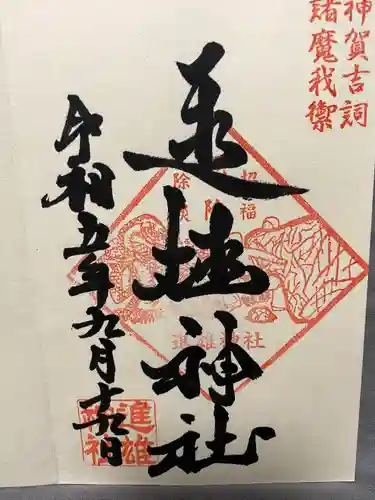 神賀吉詞
諸魔我禦
進雄神社
招福
除災
進雄神社
令和五年九月十九日
進雄
神社